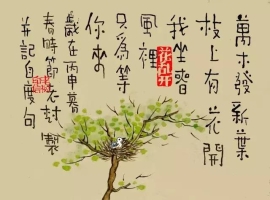 萬木發新葉
枝上有花開
我坐春
風裡
只為等
你來
歲在丙申暮
春時節石封製
并記自度句